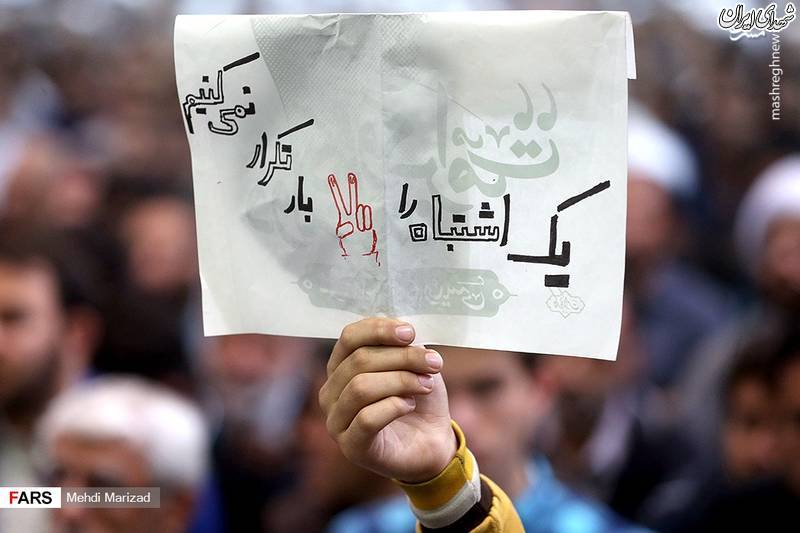 شهدای ایران
mashreghnews
یک اشتباه را
بار تکرار نمی کنیم
FARS Mehdi Marizad